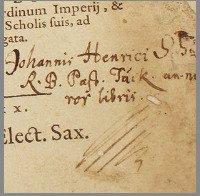 rdinum Imperij, &
Scholis suis, ad
gata.
Johannis Henrici
R. D. Past. an-no
ros libris.
x x.
Elect. Sax.